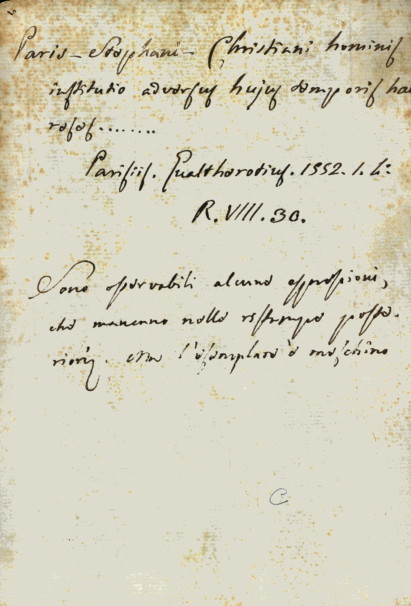 Paris - Stephani - Christiani hominis
institutio adversus hujus temporis hae
reses........
Parisiis. Gualtherotius. 1552. 1. L:
R. VIII. 30.
Sono osservabili alcune espressioni,
che mancano nelle ristampe poste-
riori. Ma l'esemplare è meschino
C